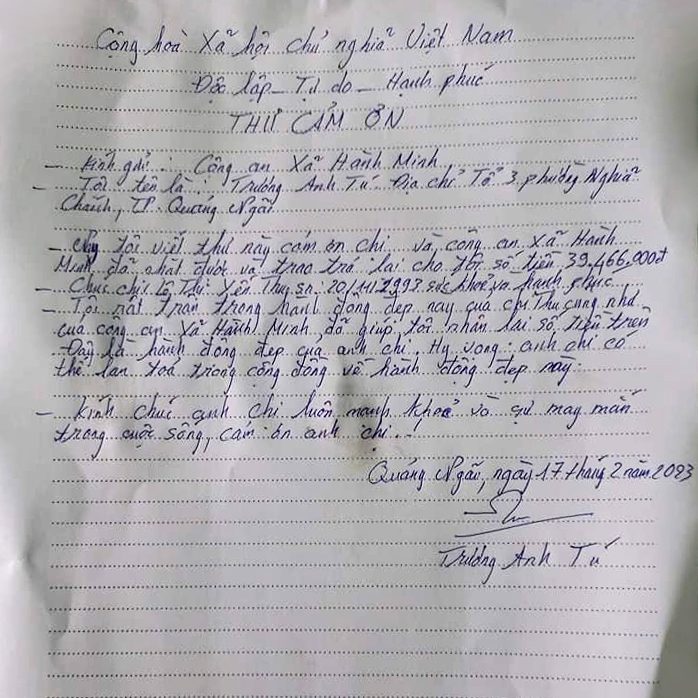 Cộng hoà Xã hội chủ nghĩa Việt Nam
Độc lập - Tự do - Hạnh phúc
THƯ CẢM ƠN
- Kính gửi: Công an Xã Hành Minh,
- Tôi tên là: Trương Anh Tú. Địa chỉ Tổ 3 phường Nghĩa
Chánh, TP Quảng Ngãi
- Nay tôi viết thư này cám ơn chị và công an xã Hành
Minh, đã nhặt được và trao trả lại cho tôi số tiền 39,466,000đ
- Chúc chị Lê Thị Yến Thu sn: 20/11/1998 sức khoẻ và hạnh phúc,
- Tôi rất trân trọng hành động đẹp này của chị Thu cũng như
của công an xã Hành Minh đã giúp tôi nhận lại số tiền trên
Đây là hành động đẹp của anh chị. Hy vọng anh chị có
thể lan toả trong cộng đồng về hành động đẹp này.
- Kính chúc anh chị luôn mạnh khoẻ và sự may mắn
trong cuộc sống, cám ơn anh chị..
Quảng Ngãi, ngày 17 tháng 2 năm 2023
Trương Anh Tú